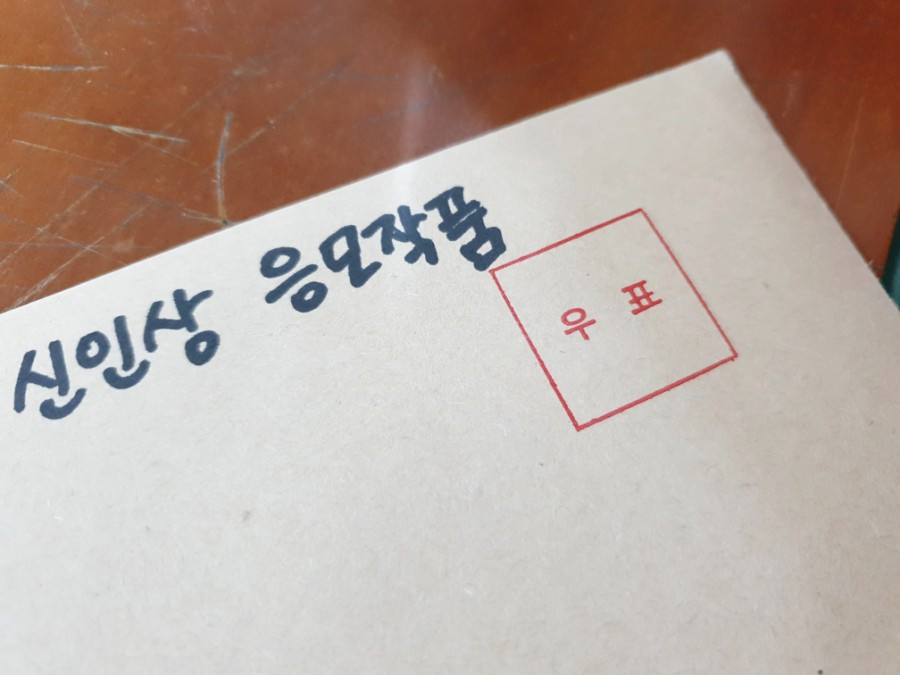 신인상 응모작품
우 표